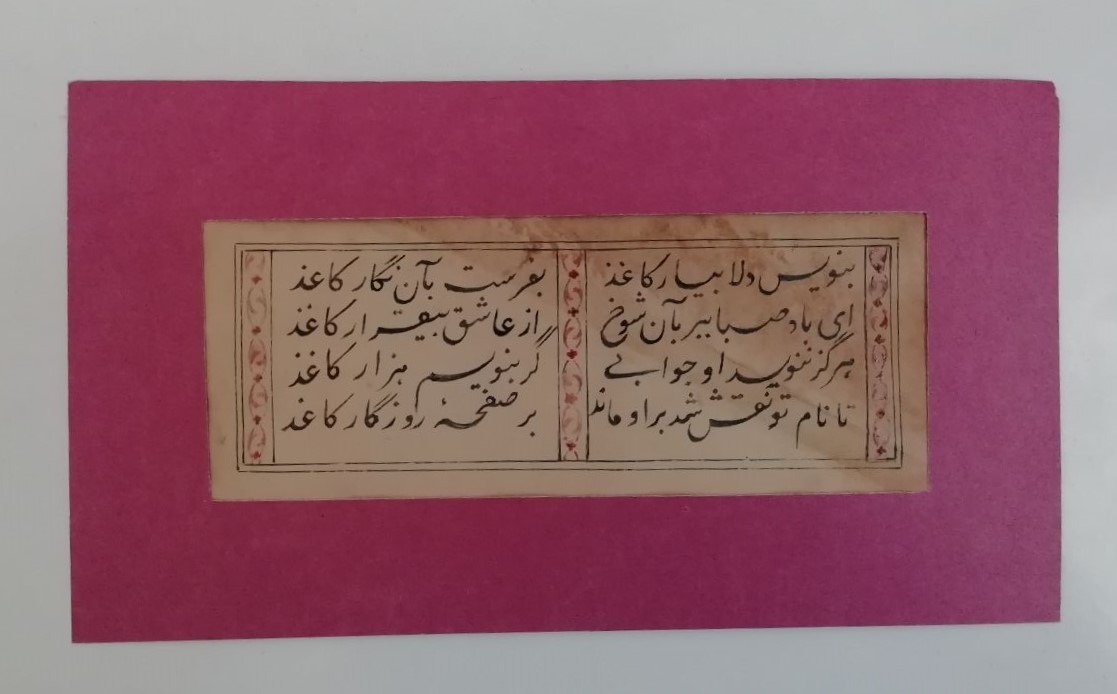 بنویس دلا بیار کاغذ بفرست بآن نگار کاغذ
ای باد صبا ببر بآن شوخ از عاشق بیقرار کاغذ
هرگز ننویسد او جوابے گر بنویسم هزار کاغذ
تا نام تو نقش شد بر او ماند بر صفحۂ روزگار کاغذ